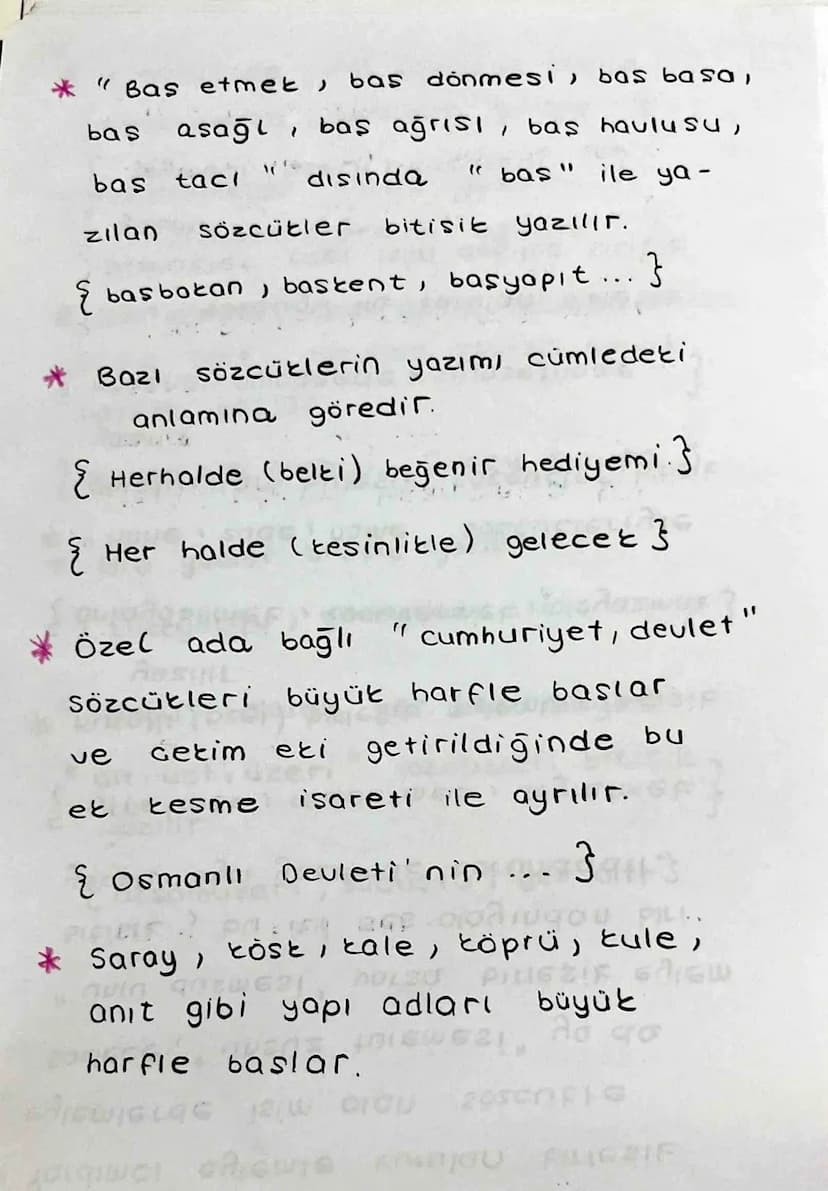 * "Baş etmek, baş dönmesi, baş başa,
baş aşağı, baş ağrısı, baş havlusu,
baş tacı" dışında "baş" ile ya-
zılan sözcükler bitişik yazılır.
{ başbakan, başkent, başyapıt ... }
* Bazı sözcüklerin yazımı cümledeki
anlamına göredir.
{ Herhalde (belki) beğenir hediyemi. }
{ Her halde (kesinlikle) gelecek }
* Özel ada bağlı "cumhuriyet, devlet"
sözcükleri büyük harfle başlar
ve çekim eki getirildiğinde bu
ek kesme işareti ile ayrılır.
{ Osmanlı Devleti'nin ... }
* Saray, köşk, kale, köprü, kule,
anıt gibi yapı adları büyük
harfle başlar.